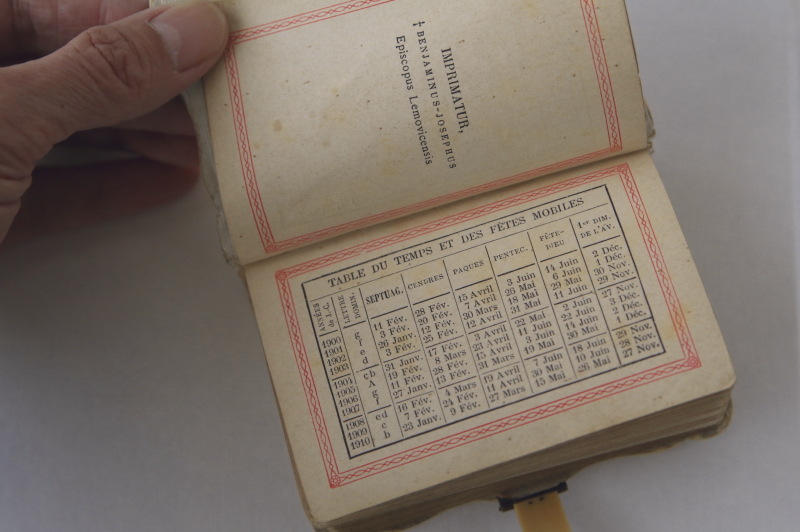 IMPRIMATUR,
† BENJAMINUS-JOSEPHUS
Episcopus Lemovicensis
TABLE DU TEMPS ET DES FÊTES MOBILES
ANNÉES de J.C. LETTRE DOMIN. SEPTUAG. CENDRES PAQUES PENTEC. FÊTE-DIEU 1er DIM. DE L'AV.
1900 g 11 Fév. 28 Fév. 15 Avril 3 Juin 14 Juin 2 Déc.
1901 f 3 Fév. 20 Fév. 7 Avril 26 Mai 6 Juin 1 Déc.
1902 e 26 Janv. 12 Fév. 30 Mars 18 Mai 29 Mai 30 Nov.
1903 d 3 Fév. 25 Fév. 12 Avril 31 Mai 11 Juin 29 Nov.
1904 cb 31 Janv. 17 Fév. 3 Avril 22 Mai 2 Juin 27 Nov.
1905 A 19 Fév. 8 Mars 23 Avril 11 Juin 22 Juin 3 Déc.
1906 g 11 Fév. 28 Fév. 15 Avril 3 Juin 14 Juin 2 Déc.
1907 f 27 Janv. 13 Fév. 31 Mars 19 Mai 30 Mai 1 Déc.
1908 ed 16 Fév. 4 Mars 19 Avril 7 Juin 18 Juin 29 Nov.
1909 c 7 Fév. 24 Fév. 11 Avril 30 Mai 10 Juin 28 Nov.
1910 b 23 Janv. 9 Fév. 27 Mars 15 Mai 26 Mai 27 Nov.